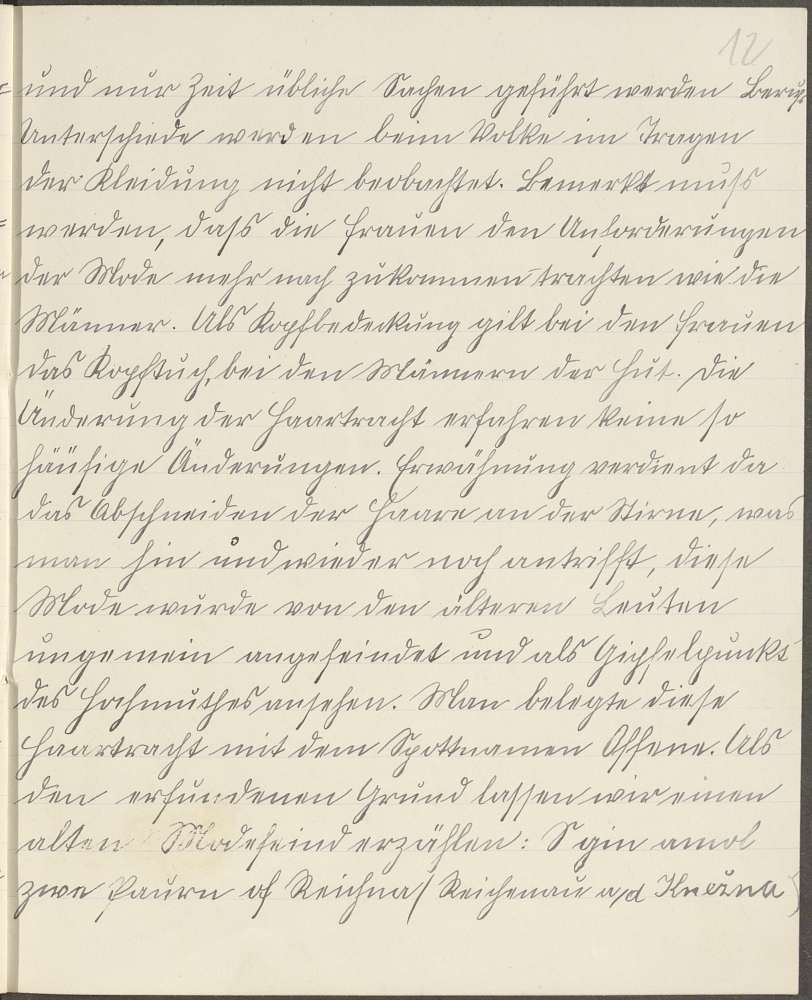 12
und nur Zeit übliche Sachen geführt werden Berufs
Unterschiede werden beim Volke im Tragen
der Kleidung nicht beobachtet. Bemerkt muss
werden, dass die Frauen den Anforderungen
der Mode mehr nach zukommen trachten wie die
Männer. Als Kopfbedeckung gilt bei den Frauen
das Kopftuch, bei den Männern der Hut. Die
Änderung der Haartracht erfahren keine so
häufige Änderungen. Erwähnung verdient da
das Abschneiden der Haare an der Stirne, was
man hin und wieder noch antrifft, diese
Mode wurde von den älteren Leuten
ungemein angefeindet und als Gipfelpunkt
des Hochmuthes ansehen. Man belegte diese
Haartracht mit dem Spottnamen Affene. Als
den erfundenen Grund lassen wir einen
alten Modefeind erzählen: S gin amol
zwe Paurn of Reichna (Reichenau a/d Kněžna)